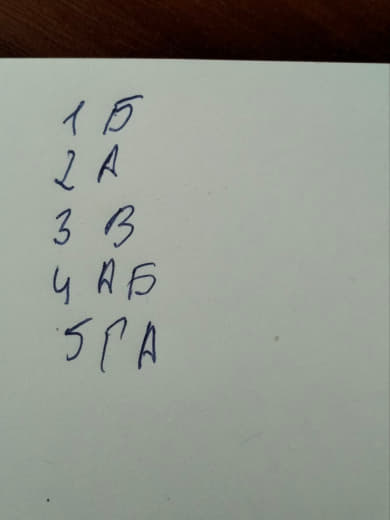 1 Б
2 А
3 В
4 А Б
5 Г А